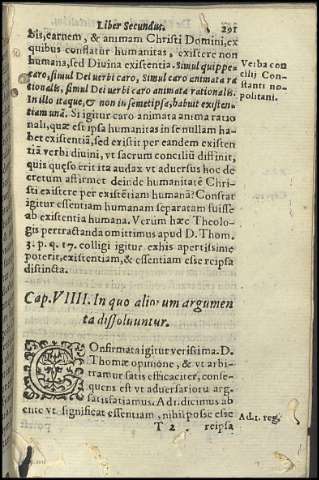 Liber Secundus. 291
bis, earnem, & animam Christi Domini, ex
quibus constatur humanitas, existere non
humana, sed Diuina existentia. Simul quippe
caro, simul Dei verbi caro, Simul caro animata ra
tionalis, simul Dei verbi caro animata rationalis.
In illo itaque, & non in semetipsa, habuit existen-
tiam unā. Si igitur caro animata anima ratio
nali, quæ est ipsa humanitas in se nullam ha-
bet existentiā, sed existit per eandem existen
tiā verbi diuini, vt sacrum conciliū diffinit,
quis quęso erit ita audax vt aduersus hoc de
cretum affirmet deinde humanitatē Chri-
sti existere per existētiam humanā? Constat
igitur essentiam humanam separatam fuisse
ab existentia humana. Verùm hæc Theolo-
gis pertractanda omittimus apud D. Thom.
3. p. q. 17. colligi igitur ex his apertissime
poterit, existentiam, & essentiam esse reipsa
distincta.
Verba con
cilij Con-
stanti no-
politani.
Cap. VIIII. In quo aliorum argumen
ta dissoluuntur.
COnfirmata igitur verissima. D.
Thomæ opinione, & vt arbi-
tramur satis efficaciter, conse-
quens est vt aduersarioru arg.
satisfatiamus. Ad 1. dicimus ab
ente vt significat essentiam, nihil posse esse
Ad. 1. reg.
T 2 reipsa